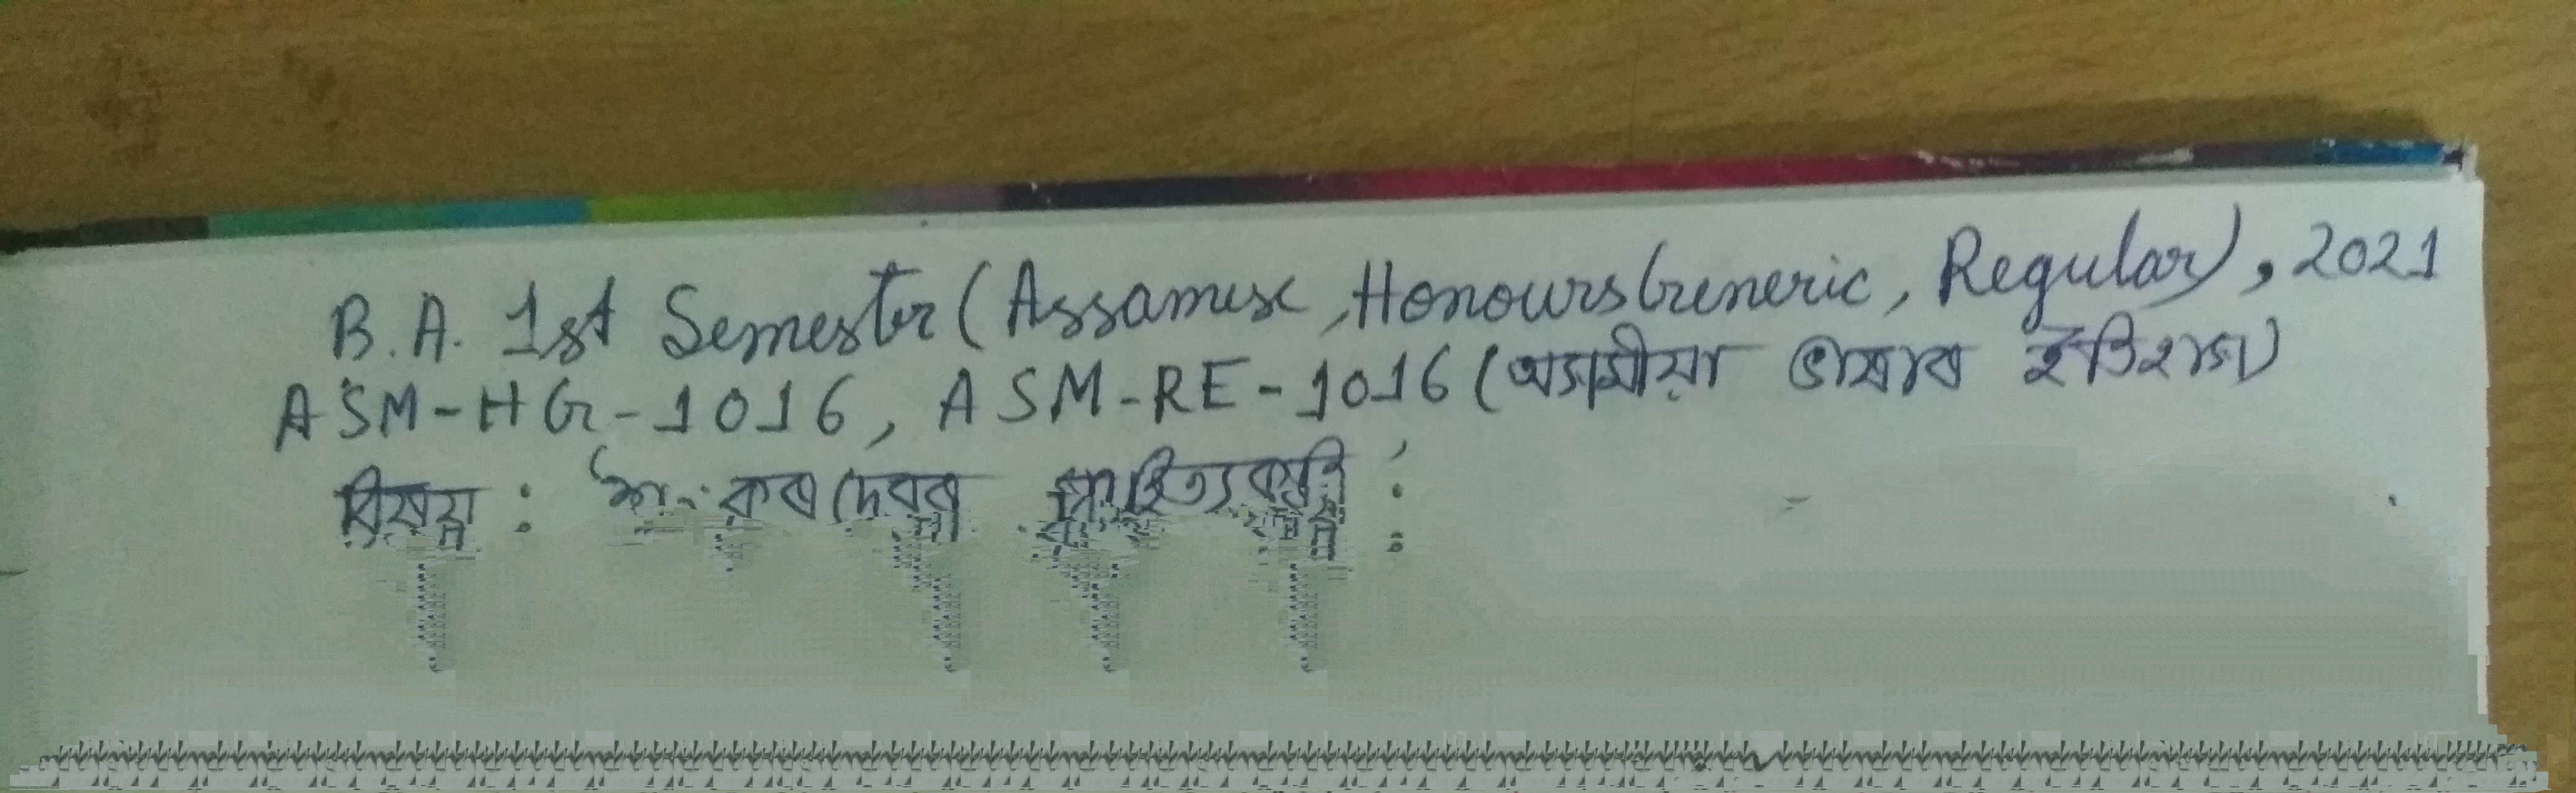 B.A. 1st Semester (Assamese, Honours Generic, Regular), 2021
ASM-HG-1016, ASM-RE-1016 (অসমীয়া ভাষাৰ ইতিহাস)
বিষয় : শংকৰদেৱৰ সাহিত্যকৃতি :